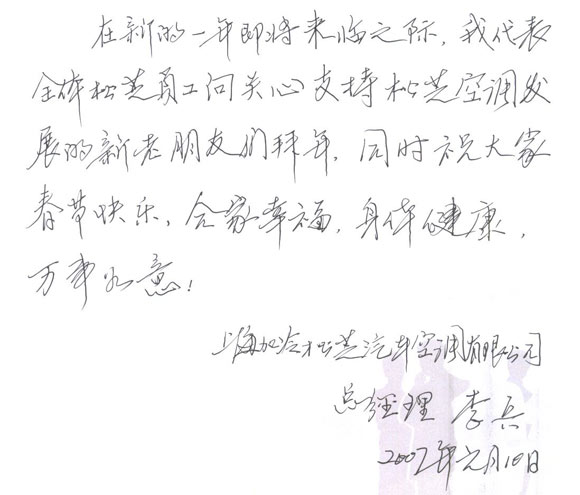 在新的一年即将来临之际，我代表
全体松芝员工向关心支持松芝空调发
展的新老朋友们拜年，同时祝大家
春节快乐，合家幸福，身体健康，
万事如意！
上海加冷松芝汽车空调有限公司
总经理 李兵
2007年元月10日